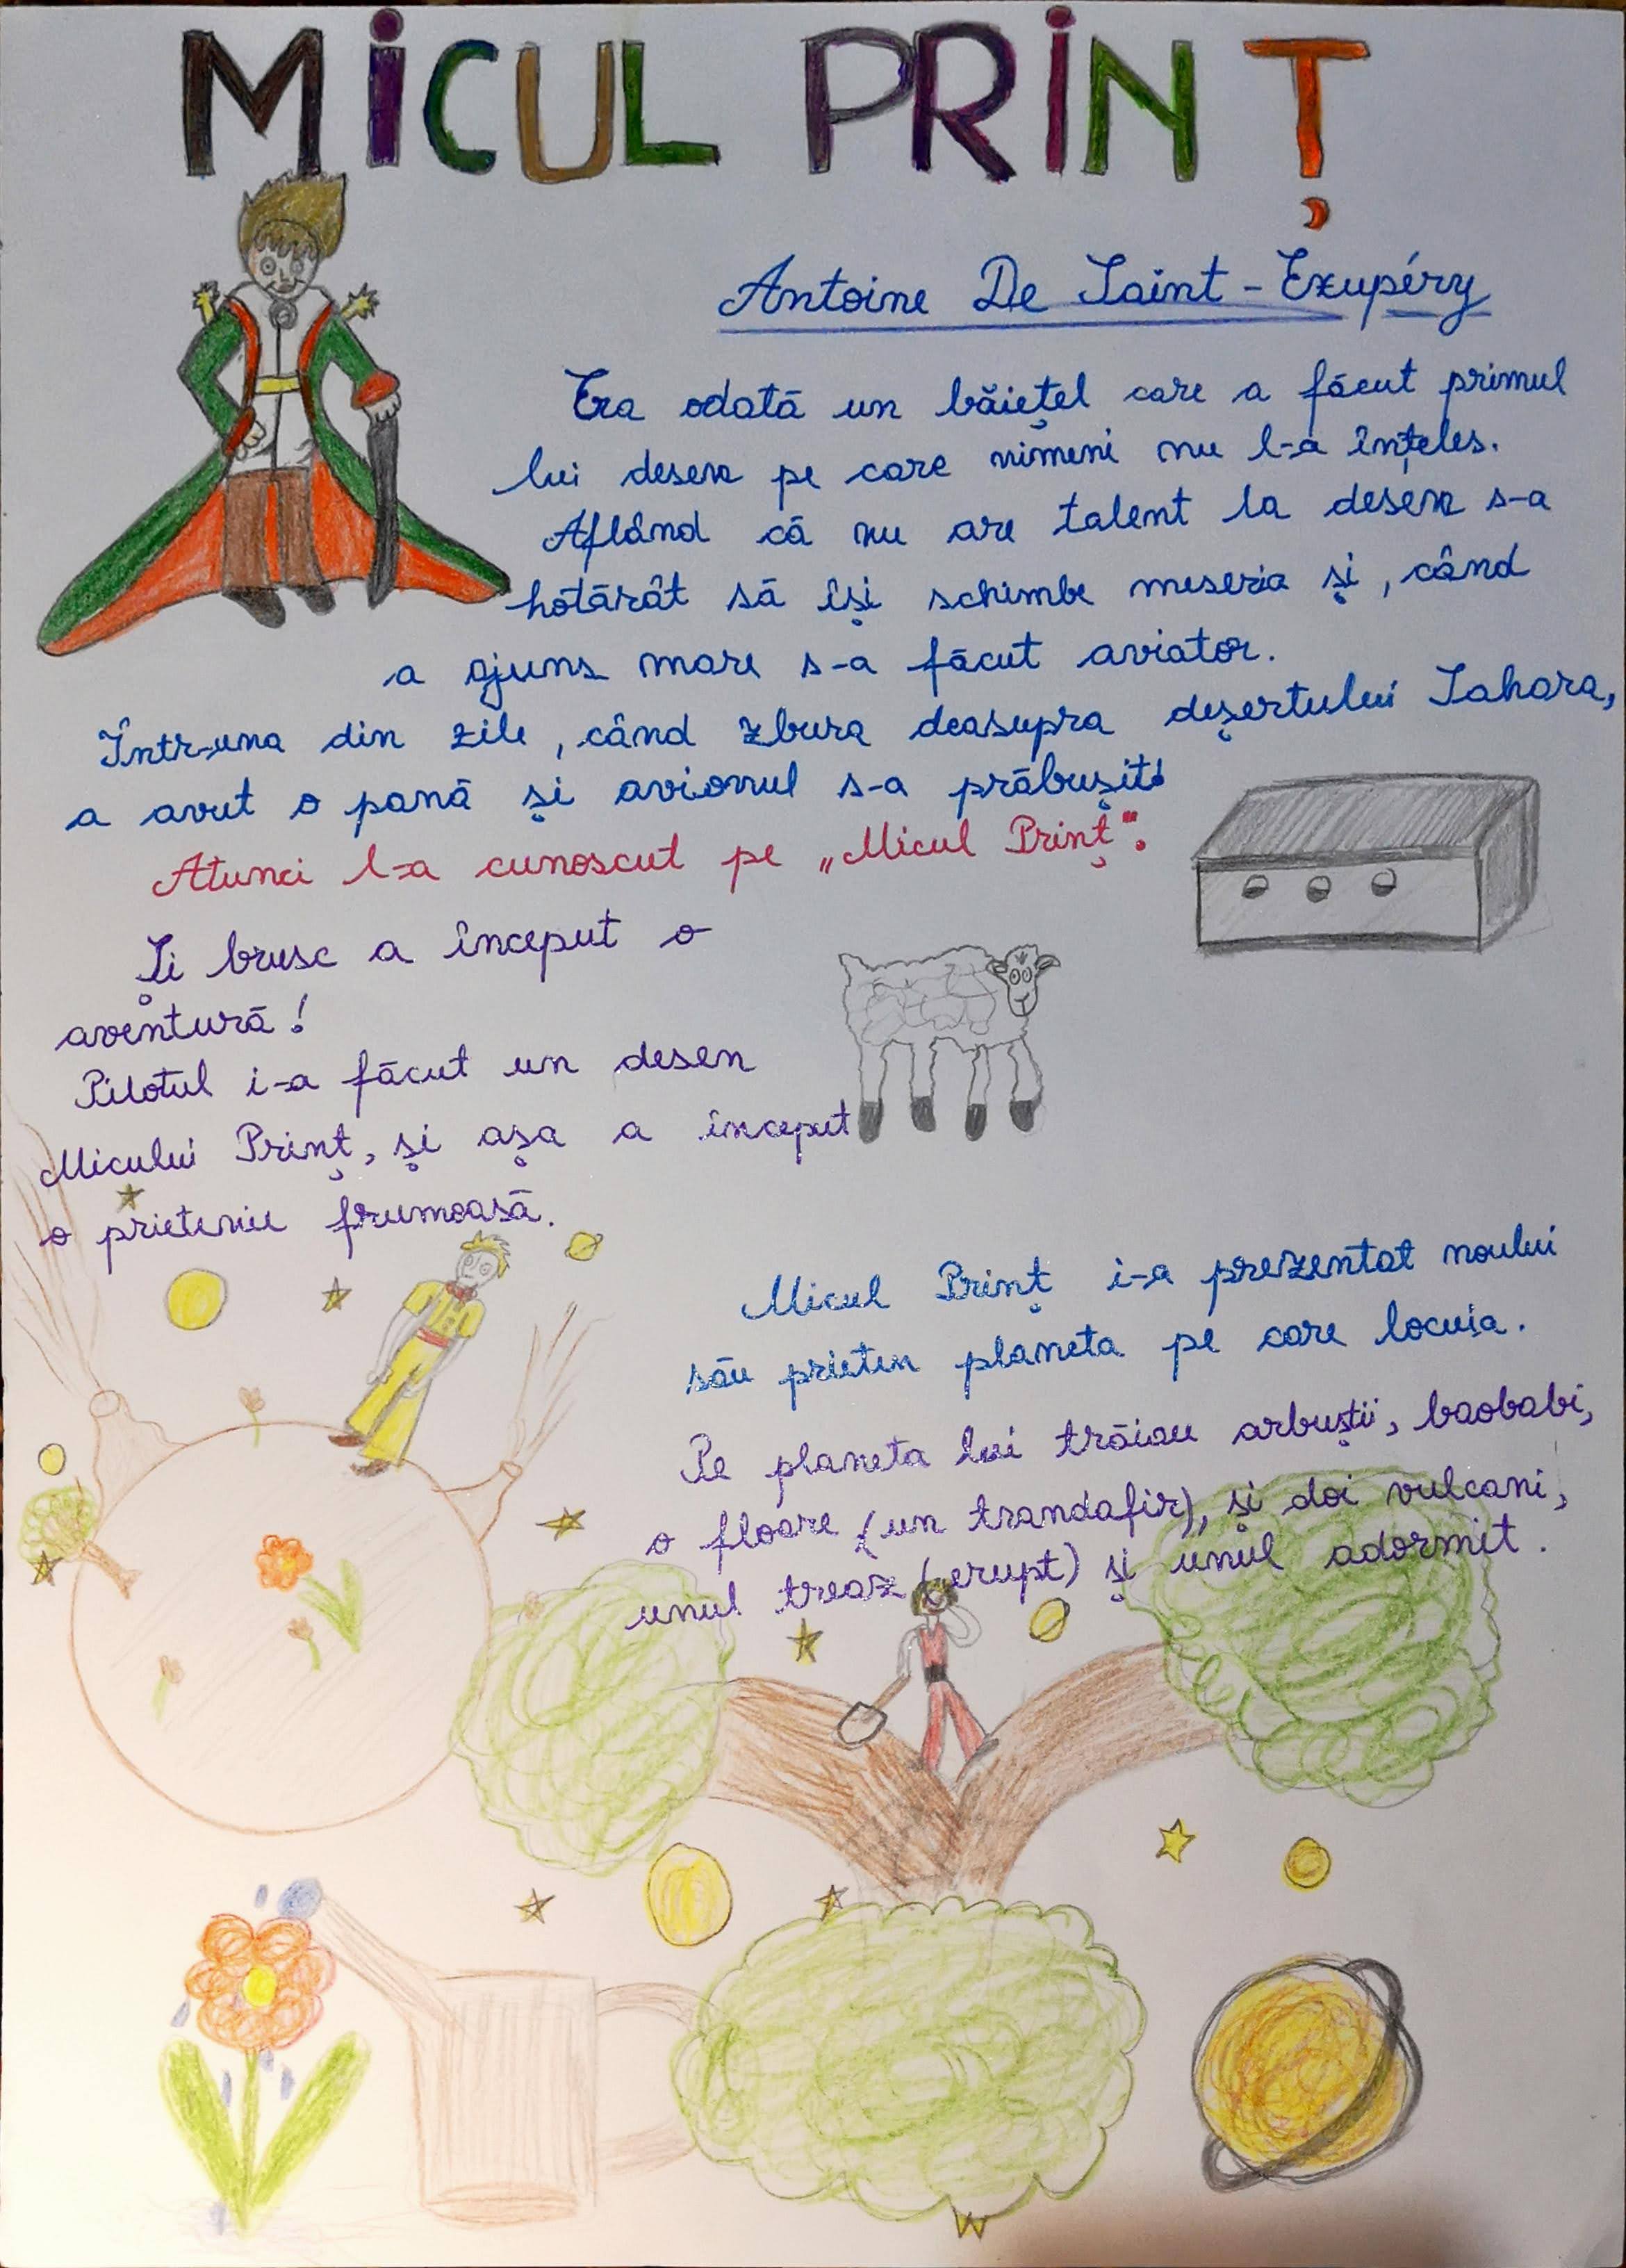 MICUL PRINȚ
Antoine De Saint-Exupéry
Era odată un băiețel care a făcut primul
lui desen pe care nimeni nu l-a înțeles.
Aflând că nu are talent la desen s-a
hotărât să își schimbe meseria și, când
a ajuns mare s-a făcut aviator.
Într-una din zile, când zbura deasupra deșertului Sahara,
a avut o pană și avionul s-a prăbușit!
Atunci l-a cunoscut pe „Micul Prinț".
Și brusc a început o
aventură!
Pilotul i-a făcut un desen
Micului Prinț, și așa a început
o prietenie frumoasă.
Micul Prinț i-a prezentat noului
său prieten planeta pe care locuia.
Pe planeta lui trăiau arbuștii, baobabi,
o floare (un trandafir), și doi vulcani,
unul treaz (erupt) și unul adormit.